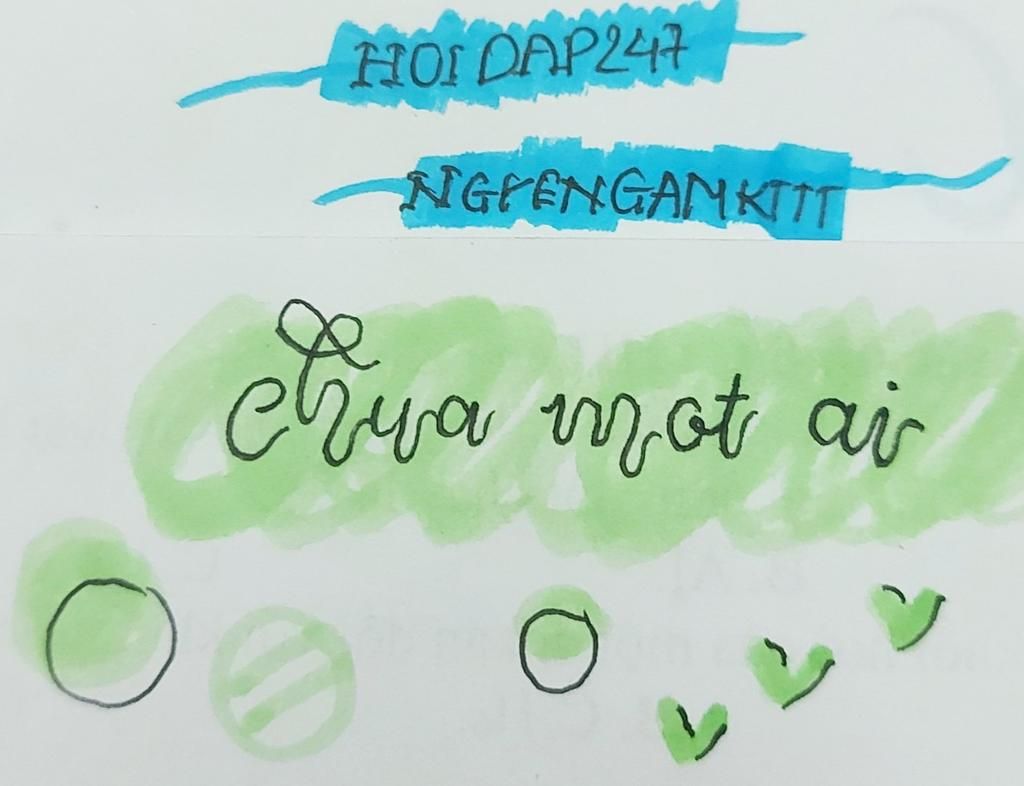 HOIDAP247
NGYENGAMKTTT
chua mot ai